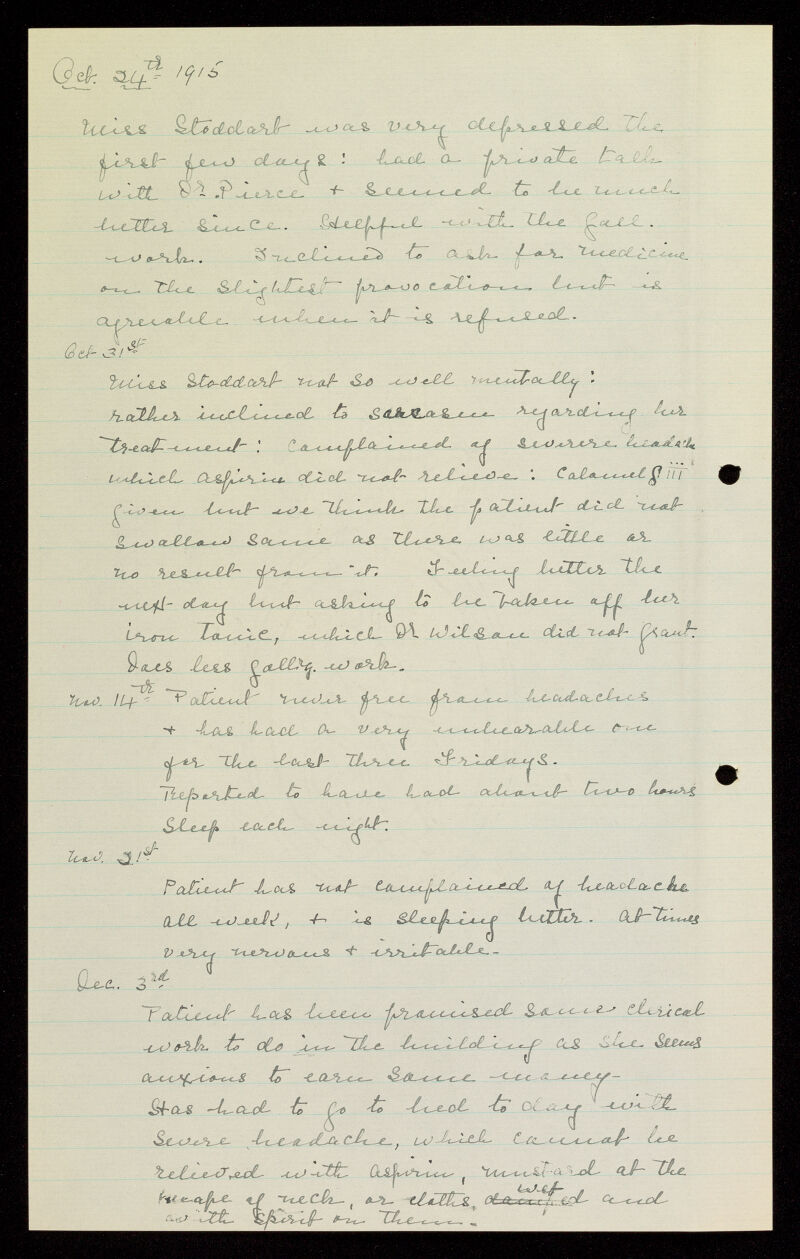 Oct. 24th 1915
Miss Stoddart was very depressed the
first few days: had a private talk
with Dr. Pierce + seemed to be much
better since. Helpful with the Gall.
work. Inclined to ask for medicine
on the slightest provocation but is
agreeable when it is refused.
Oct 31st
Miss Stoddart not so well mentally:
rather inclined to sarcasm regarding her
treatment: Complained of severe headache
which aspirin did not relieve: Calomel g iii
given but we think the patient did not
swallow same as there was little or
no result from it. Feeling better the
next day but asking to be taken off her
iron tonic, which Dr Wilson did not grant.
Does less gallig. work.
Nov. 14th Patient never free from headaches
+ has had a very unbearable one
for the last three Fridays.
Reported to have had about two hours
sleep each night.
Nov. 21st
Patient has not complained of headache
all week, + is sleeping better. At times
very nervous + irritable.
Dec. 3rd
Patient has been promised some clerical
work to do in the building as she seems
anxious to earn some money-
Has had to go to bed to day with
severe headache, which cannot be
relieved with aspirin, mustard at the
nape of neck, or cloths, damped wet and
with spirit on them.